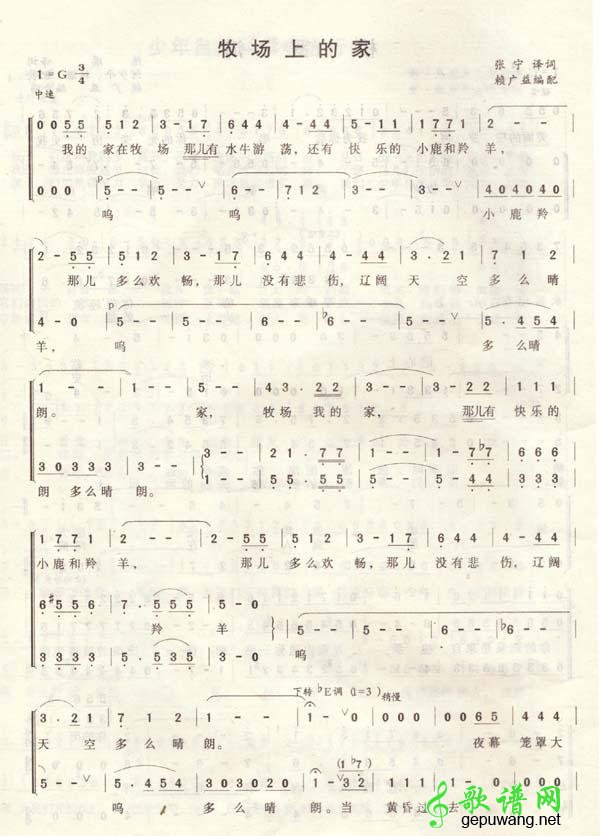 牧场上的家
1=G 3/4
中速
张宁 译词
赖广益编配
0055 | 512 | 3-17 | 644 | 4-44 | 5-11 | 1771 | 2-- |
我的 家在牧 场 那儿有 水牛游 荡,还有 快乐的 小鹿和羚 羊,
p
000 | 5-- | 5-∨ | 6-- | 712 | 3-- | 404040
呜 呜 小鹿羚
2-55 | 512 | 3-17 | 644 | 4-44 | 3·21 | 712
那儿 多么欢 畅,那儿 没有悲 伤,辽阔 天空多么晴
p
4-0 | 5-- | 5-∨ | 6-- | ♭6-- | 5-- | 5·454
羊, 呜 多么晴
1-- | 1-- | 5-- | 43·22 | 3-- | 3-22 | 111
朗。 家, 牧场我的 家, 那儿有 快乐的
朗 多么晴 朗。
1771 | 2-- | 2-55 | 512 | 3-17 | 644 | 4-44
小鹿和羚 羊, 那儿 多么欢 畅,那儿 没有悲 伤,辽阔
羚 羊 呜
下转♭E调(1=3)
稍慢
3·21 | 712 | 1-- | 1-∨ | 000 | 0065 | 444
天空多么晴 朗。 夜幕 笼罩大
(1♭7)
5--∨ | 5·454 | 303020
呜 多么晴 朗。当 黄昏过 去
歌谱网
gepuwang.net